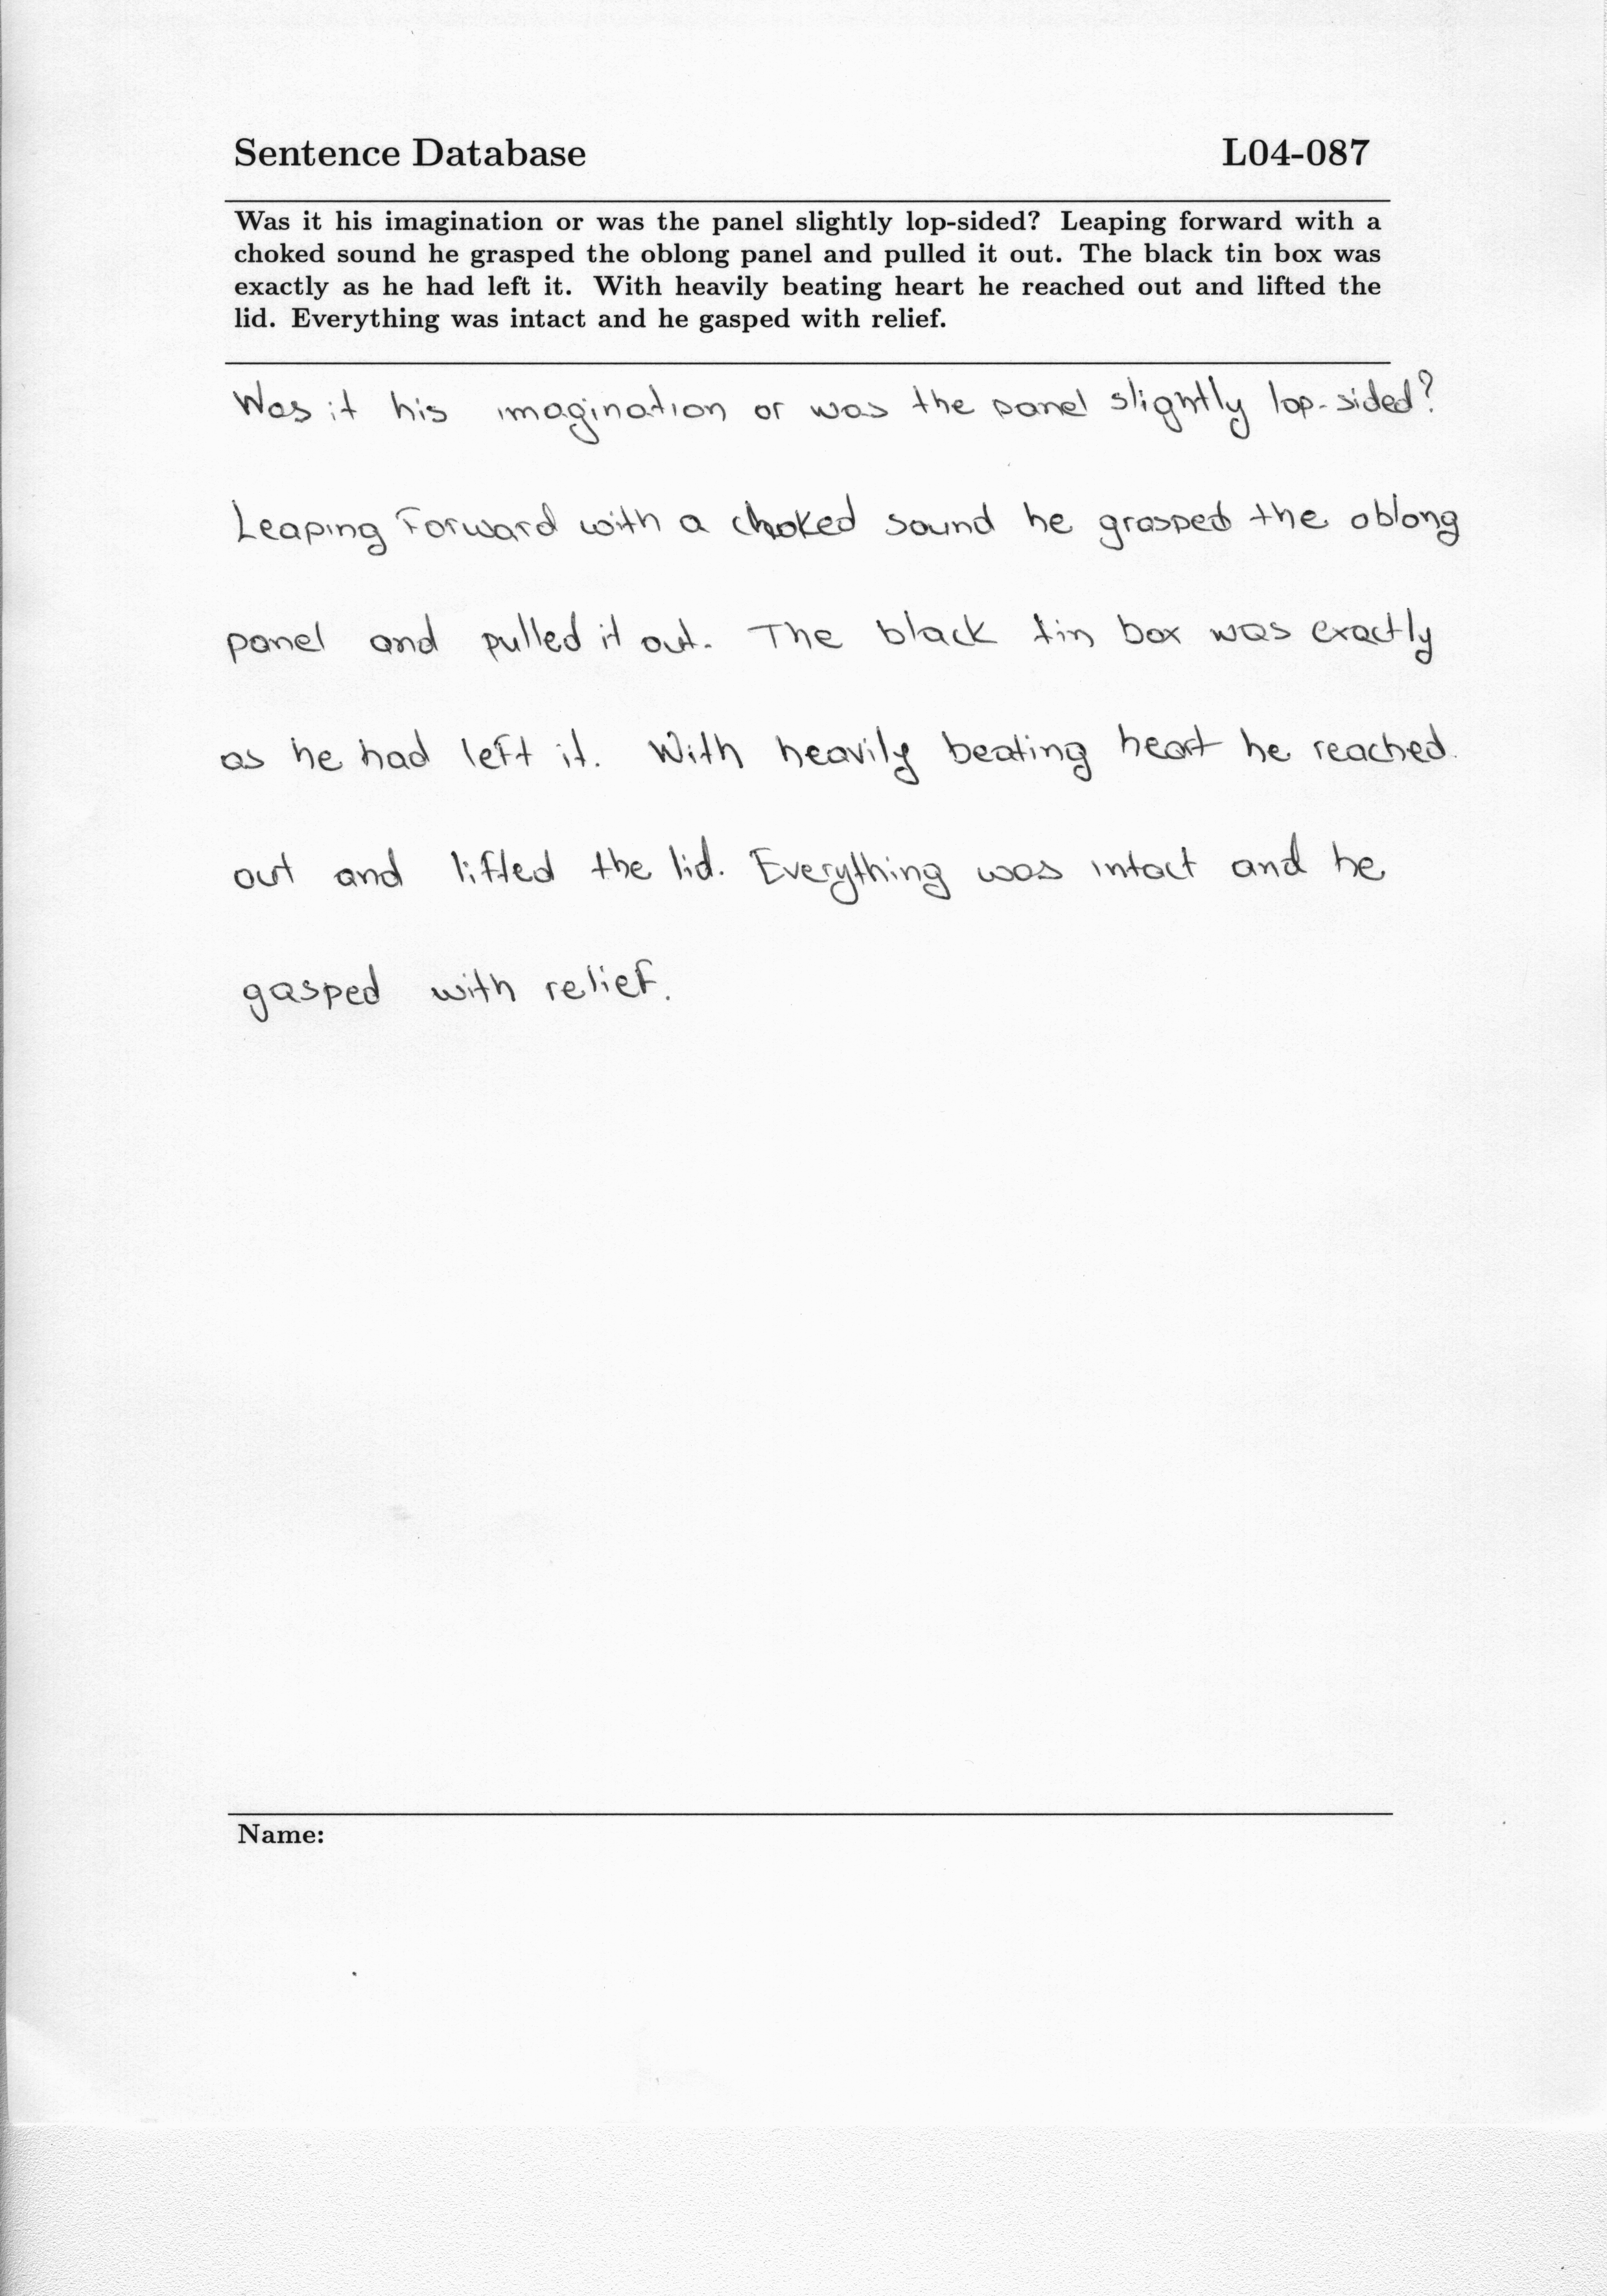 Sentence Database L04-087
Was it his imagination or was the panel slightly lop-sided? Leaping forward with a
choked sound he grasped the oblong panel and pulled it out. The black tin box was
exactly as he had left it. With heavily beating heart he reached out and lifted the
lid. Everything was intact and he gasped with relief.
Was it his imagination or was the panel slightly lop-sided?
Leaping Forward with a choked sound he grasped the oblong
panel and pulled it out. The black tin box was exactly
as he had left it. With heavily beating heart he reached
out and lifted the lid. Everything was intact and he
gasped with relief.
Name: